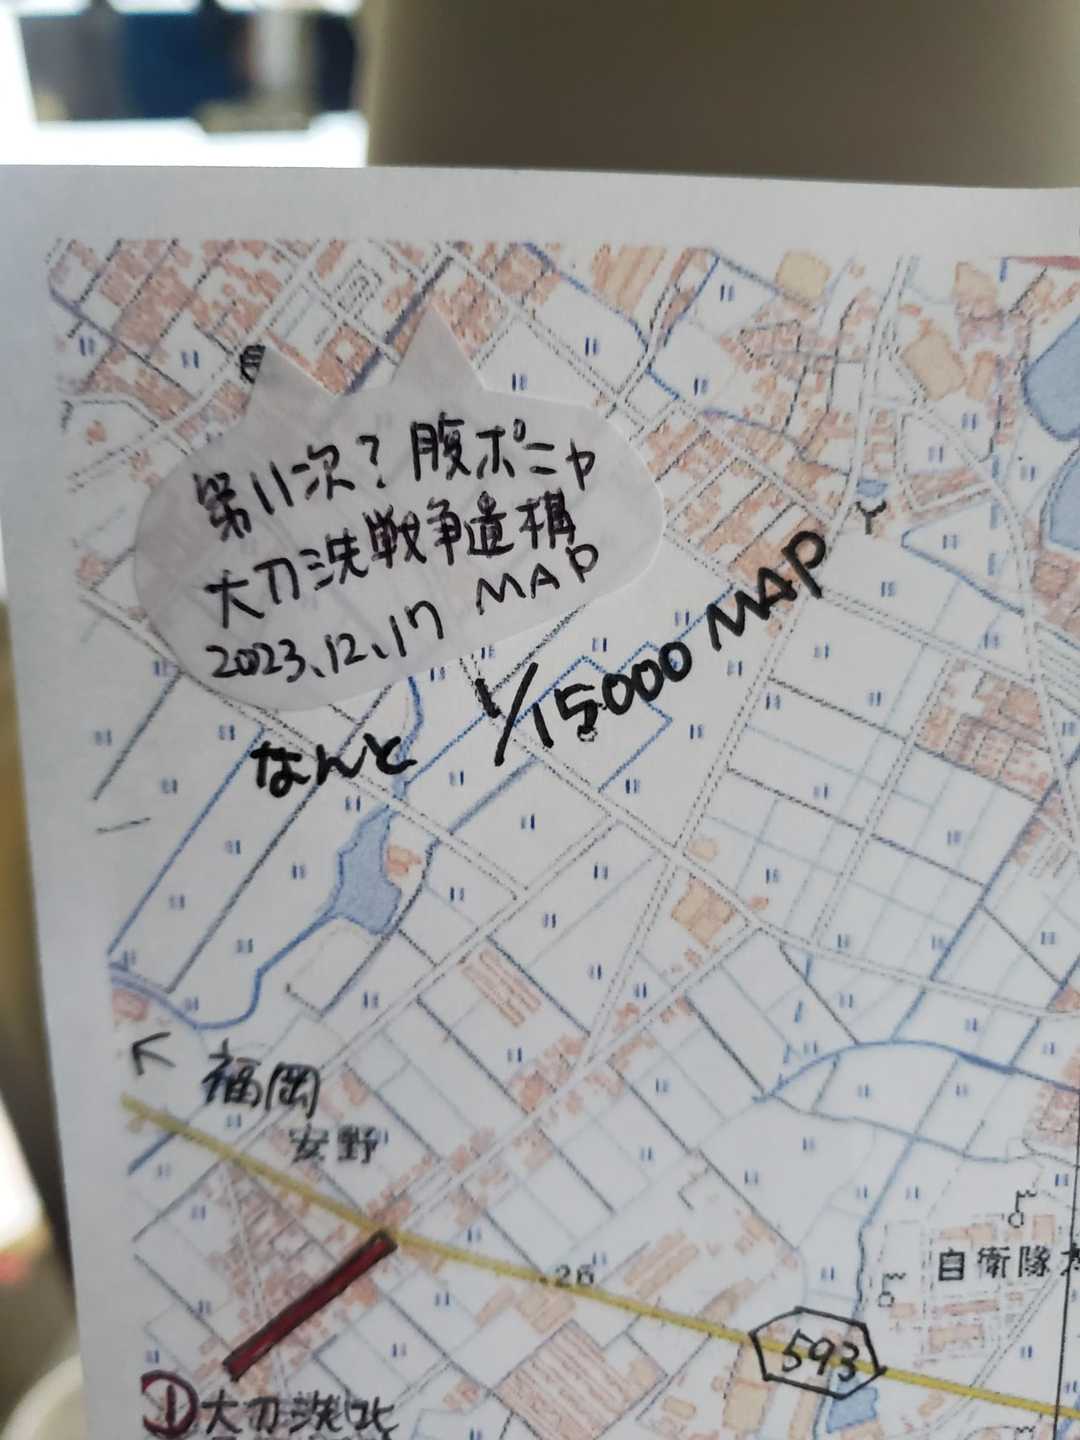 第11次？腹ポニャ
大刀洗戦争遺構
2023.12.17 MAP
なんと 1/15000 MAP
福岡
安野
.26
自衛隊
593
① 大刀洗北